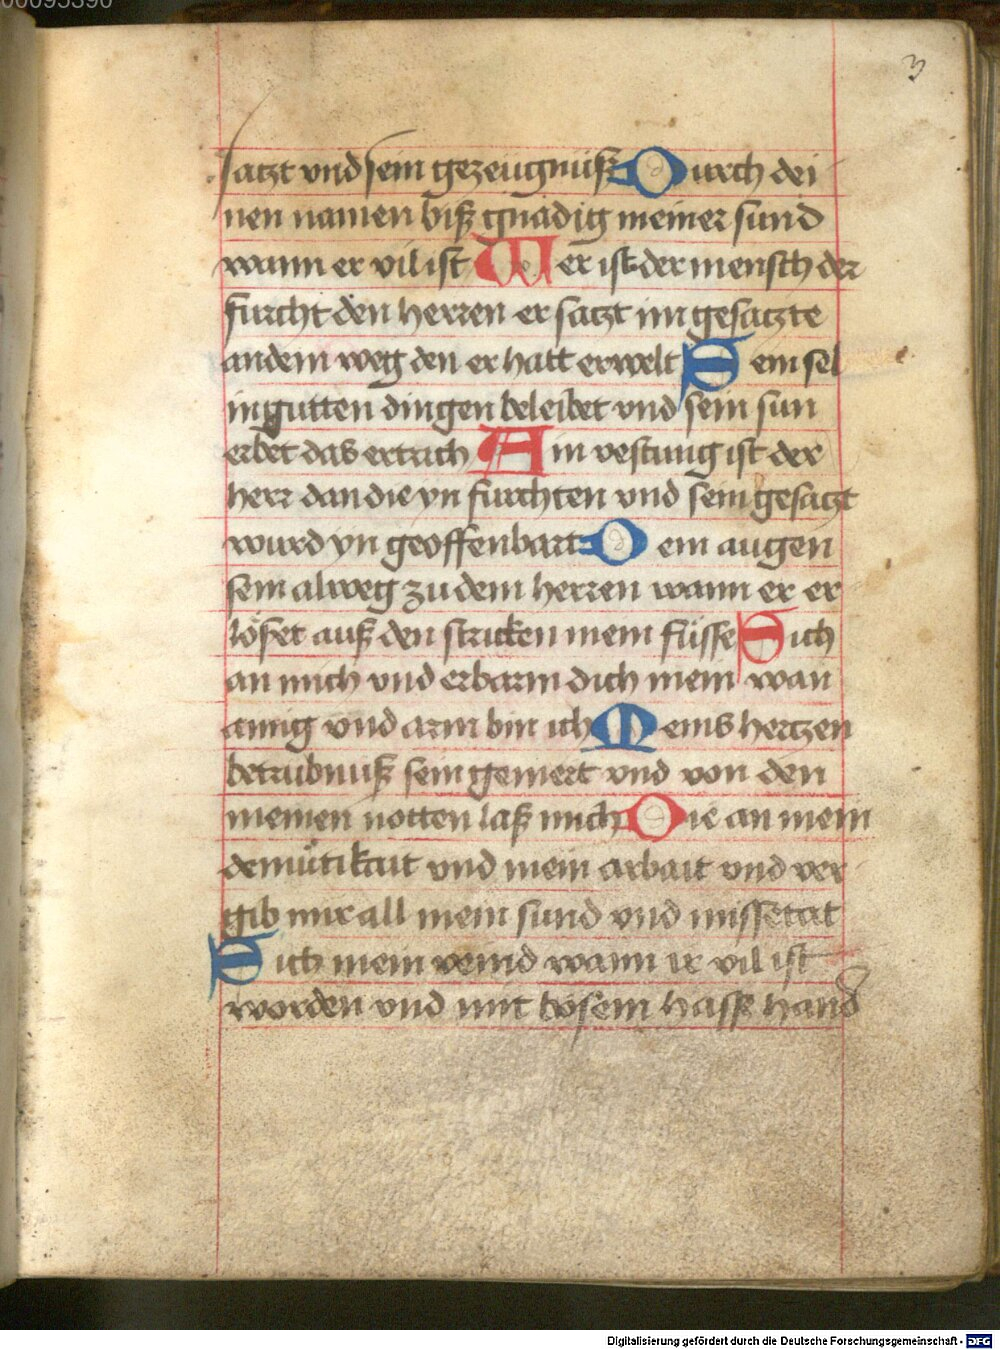 00095390
3
satzt vnd sein gezeugnuß Durch dei
nen namen biß gnadig meiner sund
wann er vil ist Wer ist der mensch der
furcht den herren er satzt im gesatzte
an dem weg den er hatt erwelt Sein sel
in gutten dingen beleibet vnd sein sun
erbet das ertrich Ain vestung ist der
herr dan die yn furchten vnd sein gesatzt
wurd yn geoffenbart Mein augen
sein alweg zu dem herren wann er er
lößet auß den stricken mein füsse Sich
an mich vnd erbarm dich mein wan
ainig vnd arm bin ich Meins hertzen
betrubnuß sein gemert vnd von den
meinen notten laß mich Sie an mein
demütikait vnd mein arbait vnd ver
gib mir all mein sund vnd missetat
Sich mein veind wann ir vil ist
worden vnd mit bösem hasse hand
Digitalisierung gefördert durch die Deutsche Forschungsgemeinschaft - DFG